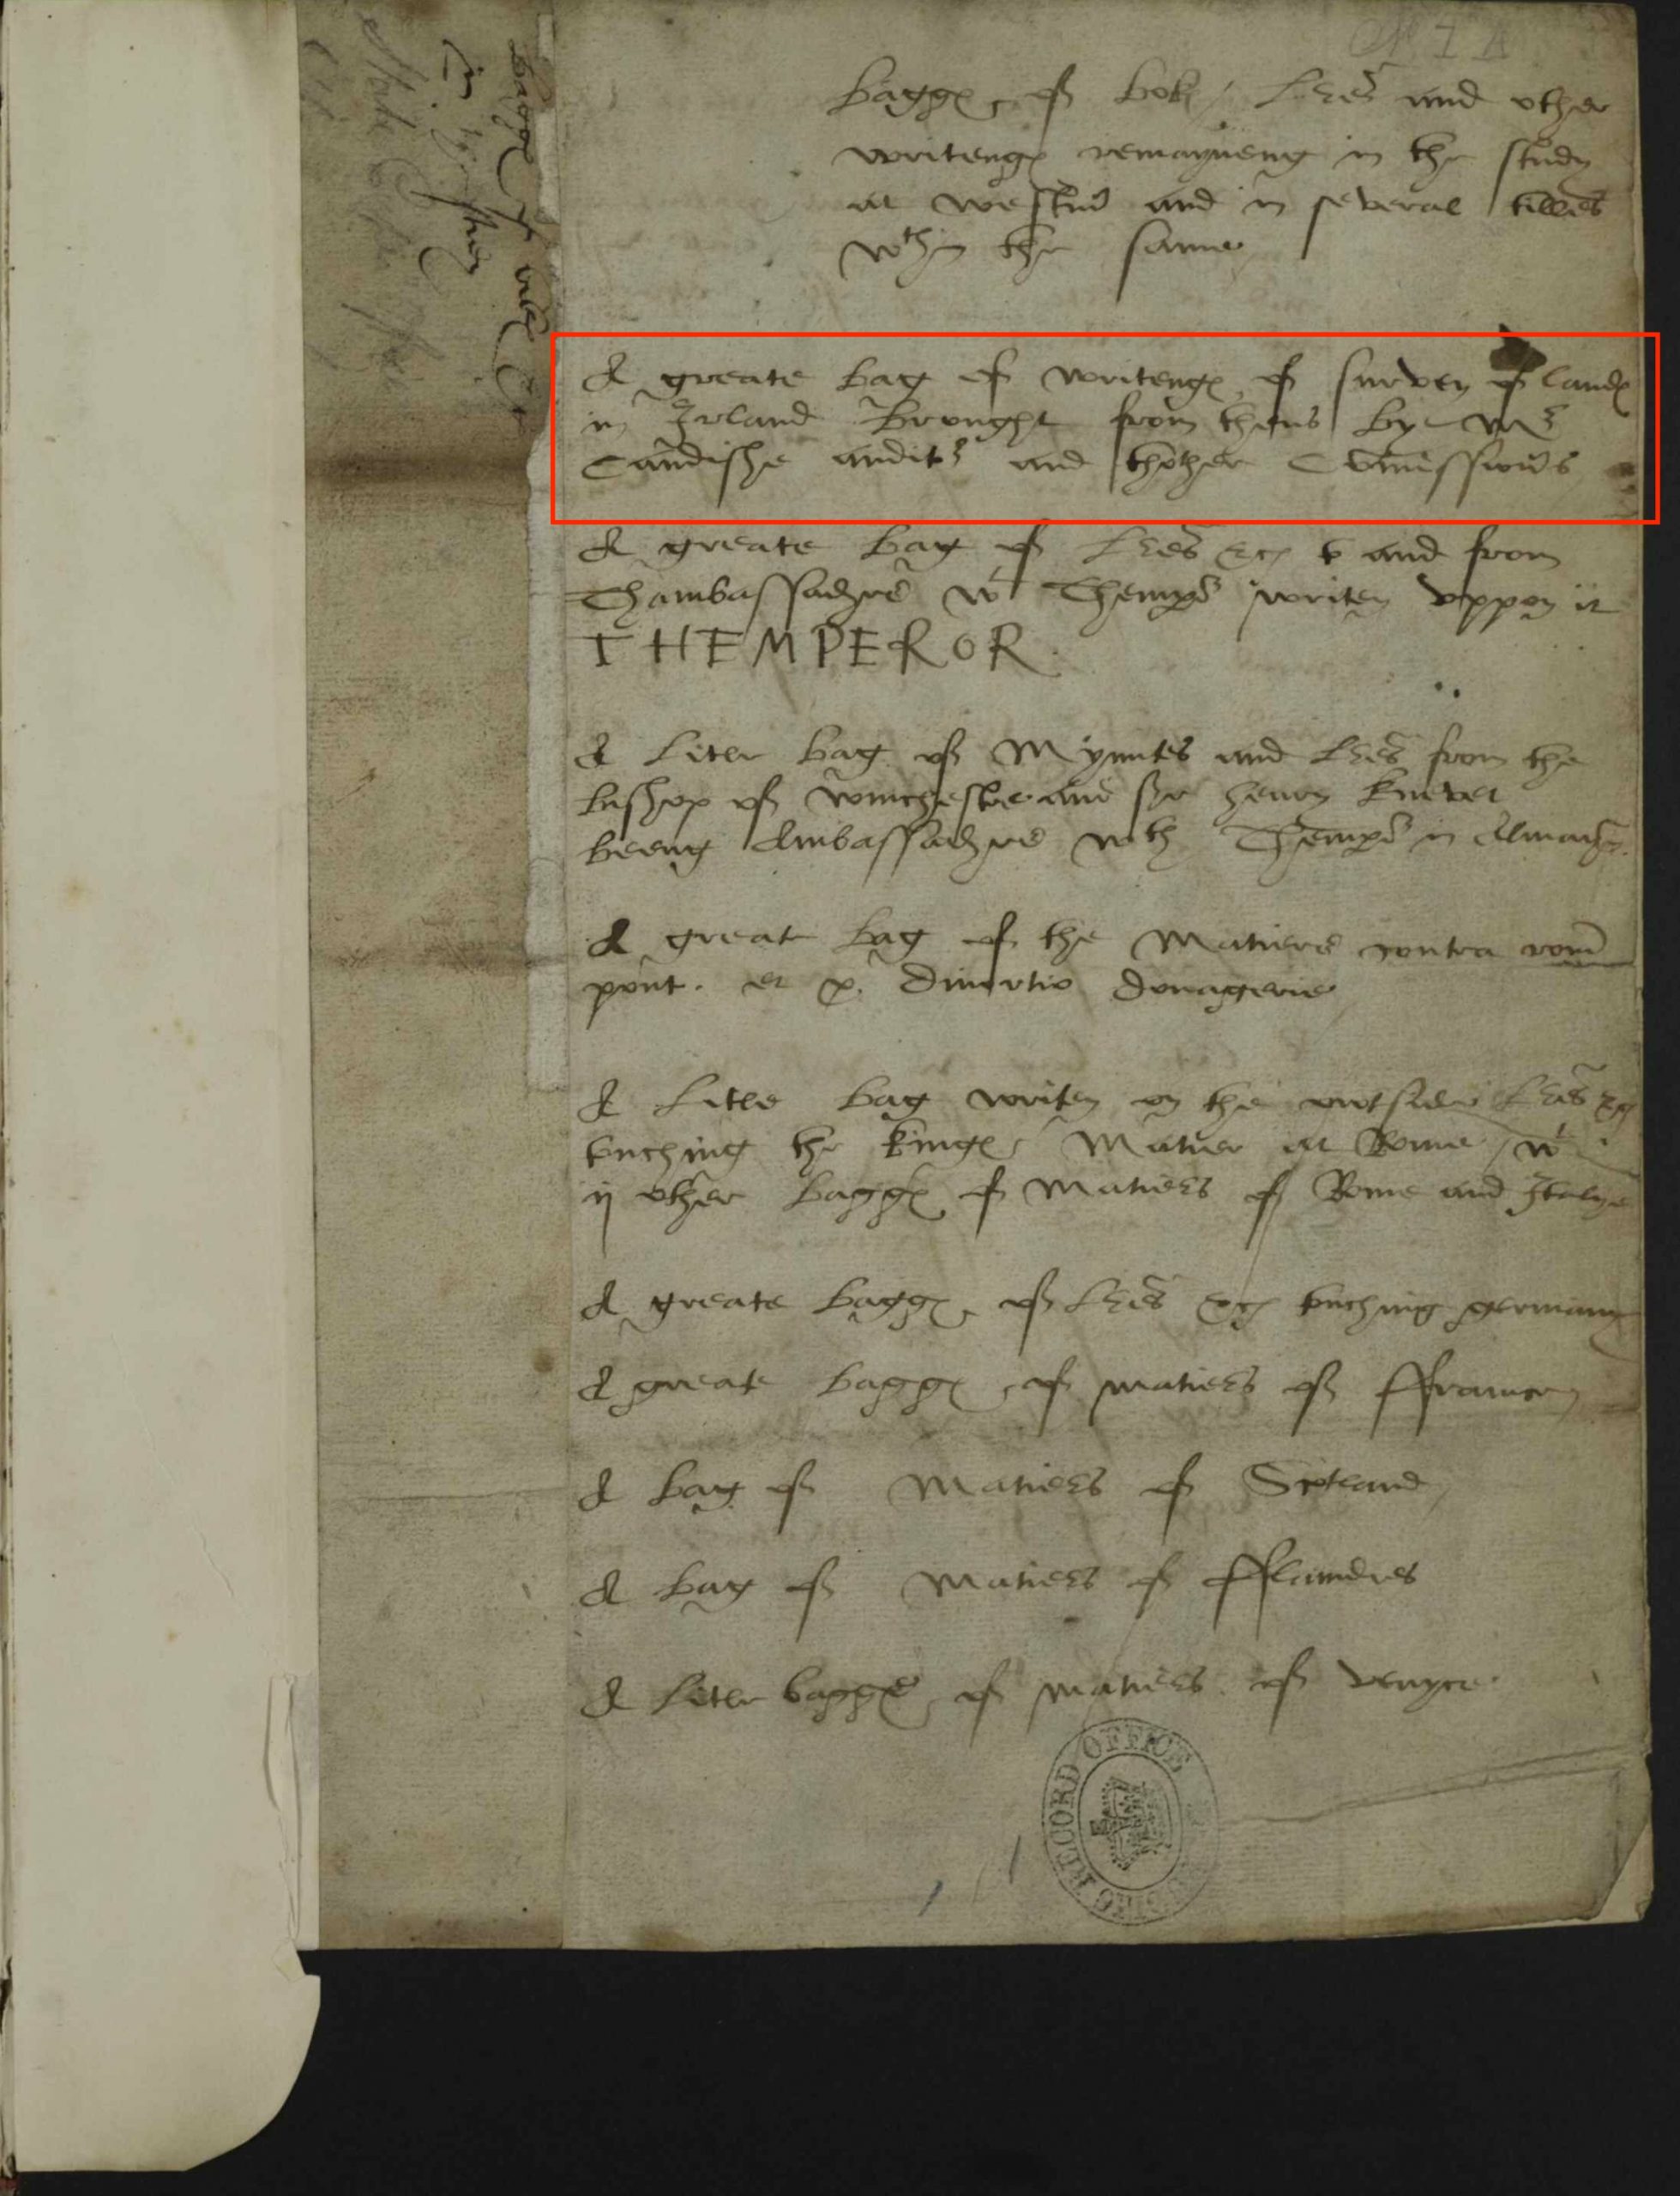 Bagges of bok / lres and other
writenges remayneng in the study
at westm and in several tilles
wthin the same
A greate bag of writenges of survey of landes
in Irland brought from thens by Mr
Candishe auditr and thother Comissiours
A greate bag of lres &c to and from
Thambassadors wt Themperor writen uppon it
THEMPEROR
A litle bag of Mynutes and lres from the
bishop of winchestre and syr henry knevet
beeng Ambassadors wth Themperor in Almayn.
A great bag of the Matiers contra rom
pont. et p. divortio donagerie
A litle bag writen on the outside lres &c
tuching the kinges Matier at Rome / wt
ij other bagges of Matiers of Rome and Italye
A greate bagge of lres &c tuching germany
A greate bagge of matiers of ffraunce
A bag of Matiers of Scotland
A bag of Matiers of fflaundres
A litle bagge of matiers of venyce
PUBLIC RECORD OFFICE